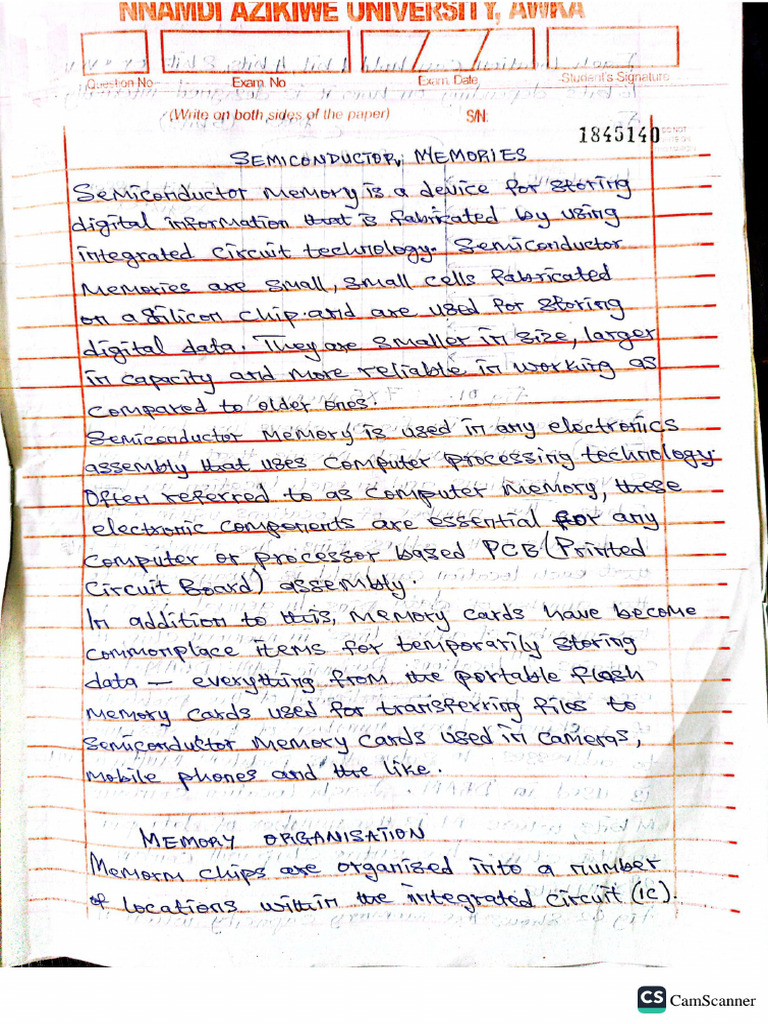 NNAMDI AZIKIWE UNIVERSITY, AWKA
Question No Exam. No Exam. Date Student's Signature
(Write on both sides of the paper) S/N:
1845140
SEMICONDUCTOR MEMORIES
Semiconductor memory is a device for storing
digital information that is fabricated by using
integrated circuit technology. Semiconductor
memories are small, small cells fabricated
on a silicon chip and are used for storing
digital data. They are smaller in size, larger
in capacity and more reliable in working as
compared to older ones.
Semiconductor memory is used in any electronics
assembly that uses computer processing technology.
Often referred to as computer memory, these
electronic components are essential for any
computer or processor based PCB (Printed
Circuit Board) assembly.
In addition to this, memory cards have become
commonplace items for temporarily storing
data — everything from the portable flash
memory cards used for transferring files to
semiconductor memory cards used in cameras,
mobile phones and the like.
MEMORY ORGANISATION
Memorm chips are organised into a number
of locations within the integrated circuit (ic).
CS CamScanner